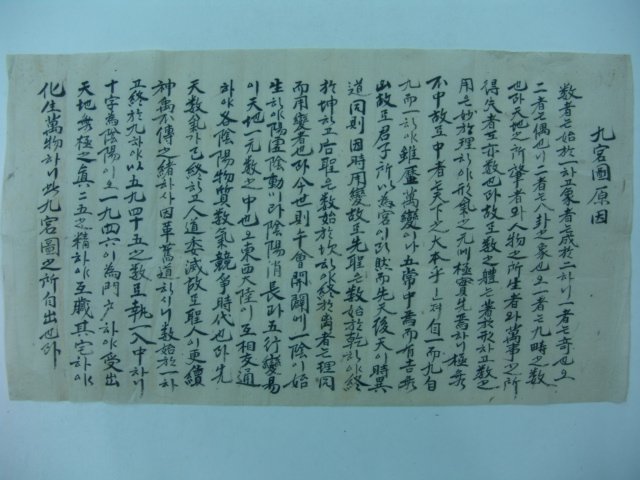 九宮圖原因
數者는始於一하고象者는成於二하니一者는奇也오
二者는偶也니二者는八卦之象也오一者는九疇之數
也라天地之所肇者와人物之所生者와萬事之所
得失者도亦數也라故로數之體는着於形하고數之
用은妙於理하야形氣之元에極實先焉하니極無
不中故로中者는天下之大本乎ㄴ져自一而九自
九而一하야雖歷萬變이나五常中焉而有吉無
凶故로君子所以為宮이라然而先天後天이時異
道同則因時用變故로先聖은數始於乾하야終
於坤하고后聖은數始於坎하야終於离者는理同
而用變者也라今世則午會開闢에一陰이始
生하야陽虛陰動이라陰陽消長과五行變易
이天地一元數之中也오東西大陸이互相交通
하야各陰陽物質數氣競爭時代也라先
天數氣가已終하고人道委滅故로聖人이更續
神禹不傳之緖하사因革萬道하시니數始於一하
고終於九하야以五九四十五之數로執一入中하니
十字為陰陽이오一九四六이為門戶하야受出
天地無極之真과二五之精하야互職其宅하야
化生萬物하니此九宮圖之所自出也라